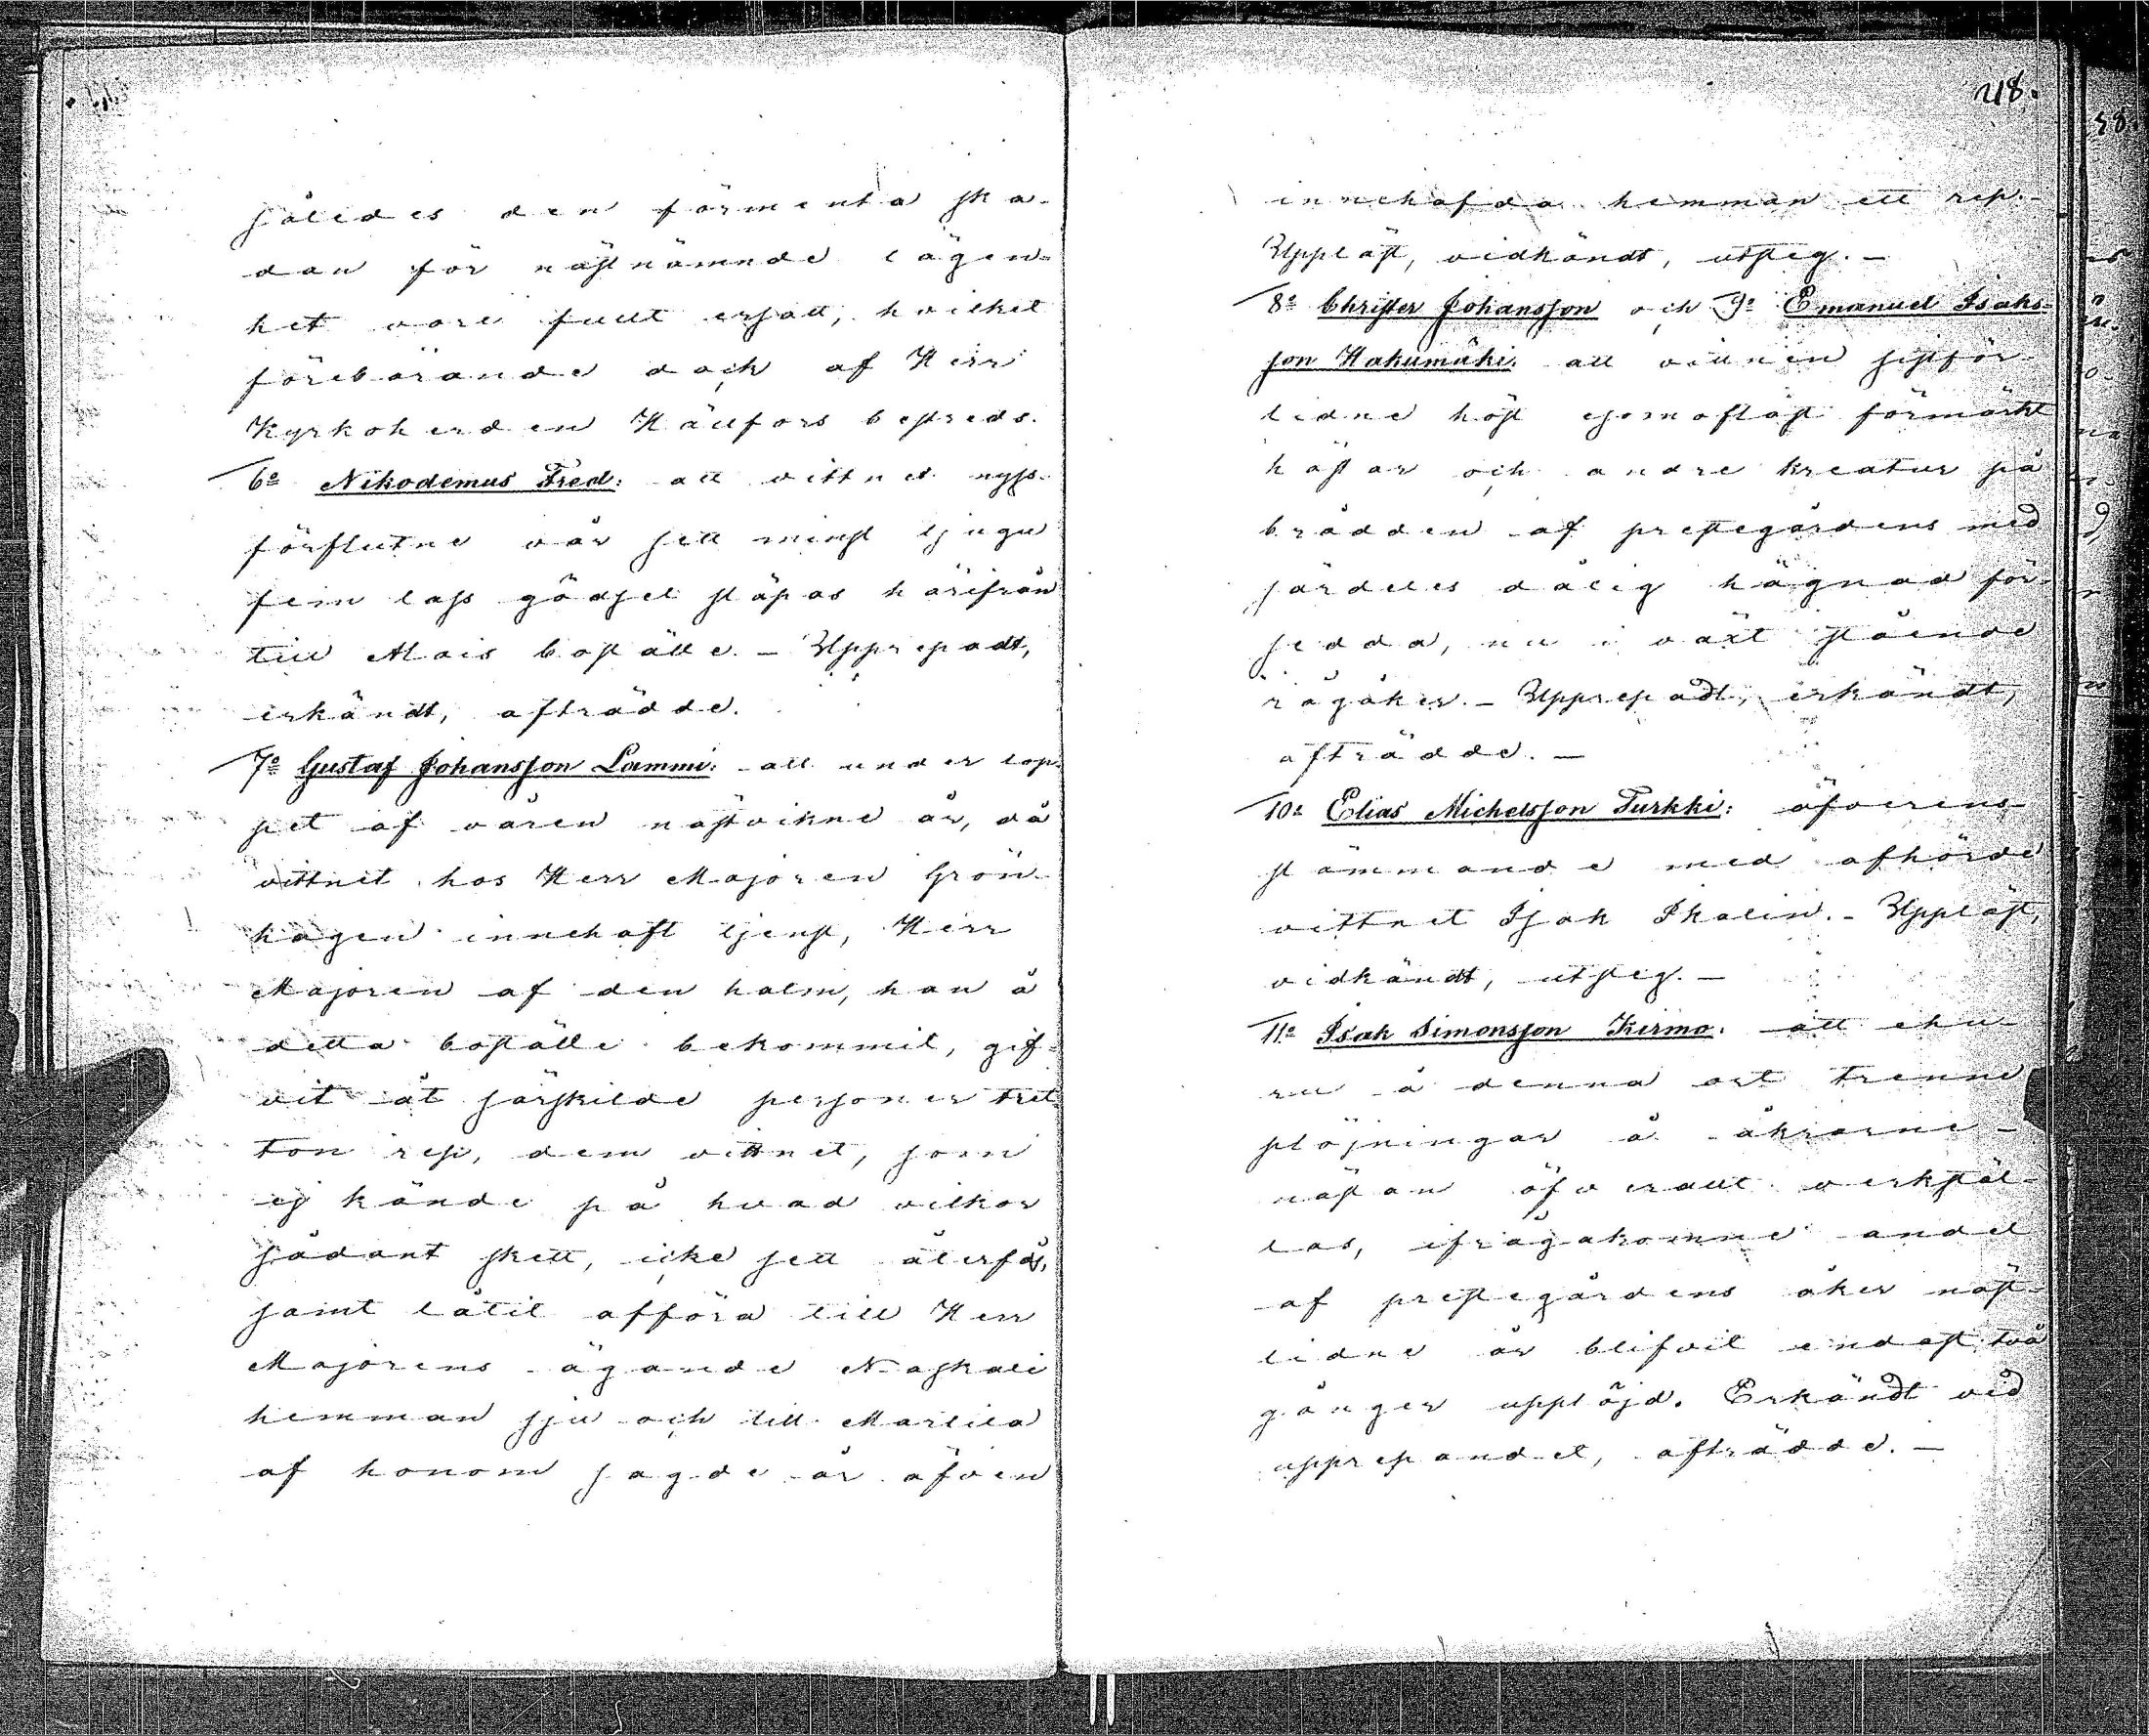 således den förmenta ska-
dan för nästnämnde lägen-
het vore fullt ersatt, hvilket
förebärande dock af Herr
Kyrkoherden Hällfors bestreds.
6:o Nikodemus Fred: att vittnet nyss-
förflutne vår sett minst tjugu
fem lass gödsel släpas härifrån
till Mais boställe. - Upprepadt,
erkändt, afträdde.
7:o Gustaf Johansson Lammi: att under lop-
pet af våren nästvikne år, då
vittnet hos Herr Majoren Grön-
hagen innehaft tjenst, Herr
Majoren af den halm, han å
detta boställe bekommit, gif-
vit åt särskilde personer tret-
ton rep, dem vittnet, som
ej kände på hvad vilkor
sådant skett, icke sett återfås,
samt låtit afföra till Herr
Majorens ägande Naskali
hemman sju och till Marlila
af honom sagde år äfven
218.
innehafda hemman ett rep. -
Uppläst, vidkändt, utsteg. -
8:o Christer Johansson och 9:o Emanuel Isaks-
son Hakumäki: att vittnen sistför-
lidne höst esomoftast förmärkt
hästar och andre kreatur på
brådden af prestegårdens med
särdeles dålig hägnad för-
sedda, nu i växt stående
rågåker. - Upprepadt, erkändt,
afträdde. -
10:o Elias Michelsson Turkki: öfverens-
stämmande med afhörde
vittnet Isak Skalin. - Uppläst,
vidkändt, utsteg. -
11:o Isak Simonsson Kirmo: att ehu-
ru å denna ort trenne
plöjningar å åkrarne
nästan öfverallt verkstäl-
las, ifrågakomne andel
af prestegårdens åker näst-
lidne år blifvit endast två
gånger upplöjd. Erkändt vid
upprepandet, afträdde. -